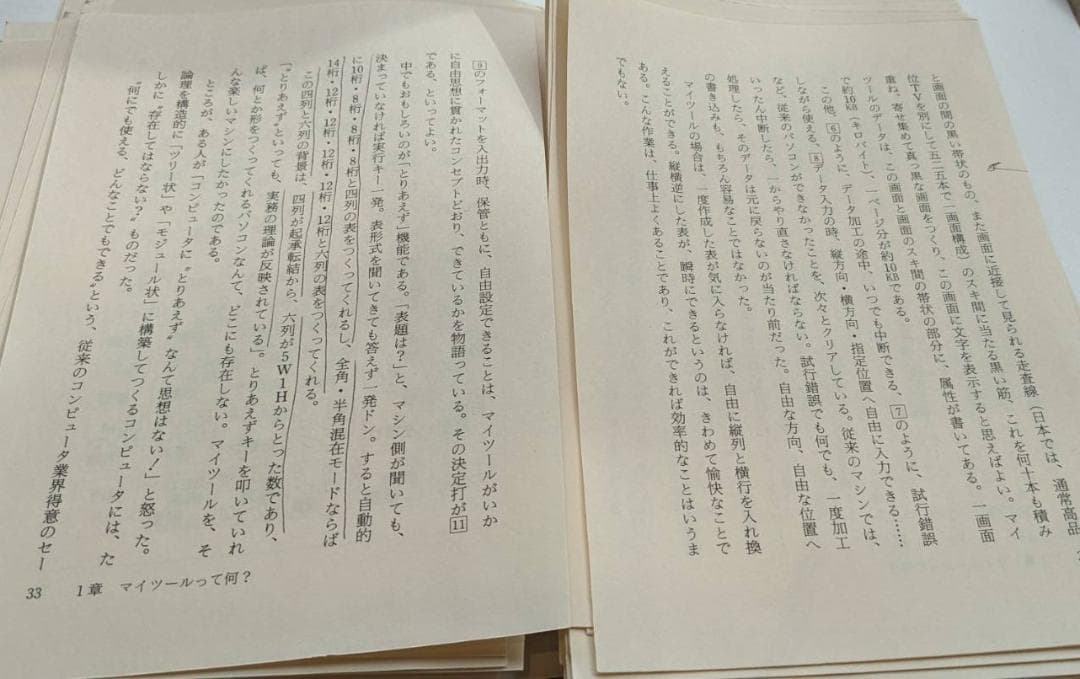 と画面の間の黒い帯状のもの、また画面に近接して見られる走査線（日本では、通常高品
位TVを別にして五二五本で一画面構成）のスキ間に当たる黒い筋、これを何十本も積み
重ね、寄せ集めて真っ黒な画面をつくり、この画面に文字を表示すると思えばよい。マイ
ツールのデータは、この画面と画面のスキ間の帯状の部分に、属性が書いてある。一画面
で約10KB（キロバイト）、一ページ分が約10KBである。
この他、6のように、データ加工の途中、いつでも中断できる、7のように、試行錯誤
しながら使える、8データ入力の時、縦方向・横方向・指定位置へ自由に入力できる……
など、従来のパソコンができなかったことを、次々とクリアしている。従来のマシンでは、
いったん中断したら、一からやり直さなければならない。試行錯誤でも何でも、一度加工
処理したら、そのデータは元に戻らないのが当たり前だった。自由な方向、自由な位置へ
の書き込みも、もちろん容易なことではなかった。
マイツールの場合は、一度作成した表が気に入らなければ、自由に縦列と横行を入れ換
えることができる。縦横逆にした表が、瞬時にできるというのは、きわめて愉快なことで
ある。こんな作業は、仕事上よくあることであり、これができれば効率的なことはいうま
でもない。
9のフォーマットを入出力時、保管ともに、自由設定できることは、マイツールがいか
に自由思想に貫かれたコンセプトどおり、できているかを物語っている。その決定打が11
である、といってよい。
中でもおもしろいのが「とりあえず」機能である。「表題は？」と、マシン側が聞いても、
決まっていなければ実行キー一発。表形式を聞いてきても答えず一発ドン。すると自動的
に10桁・8桁・8桁・8桁と四列の表をつくってくれるし、全角・半角混在モードならば
14桁・12桁・12桁・12桁・12桁・12桁と六列の表をつくってくれる。
この四列と六列の背景は、四列が起承転結から、六列が5W1Hからとった数であり、
「〝とりあえず〟といっても、実務の理論が反映されている」。とりあえずキーを叩いていれ
ば、何とか形をつくってくれるパソコンなんて、どこにも存在しない。マイツールを、そ
んな楽しいマシンにしたかったのである。
ところが、ある人が「コンピュータに〝とりあえず〟なんて思想はない！」と怒った。
論理を構造的に「ツリー状」や「モジュール状」に構築してつくるコンピュータには、た
しかに〝存在してはならない？〟ものだった。
〝何にでも使える、どんなことでもできる〟という、従来のコンピュータ業界得意のセー
33　1章　マイツールって何？